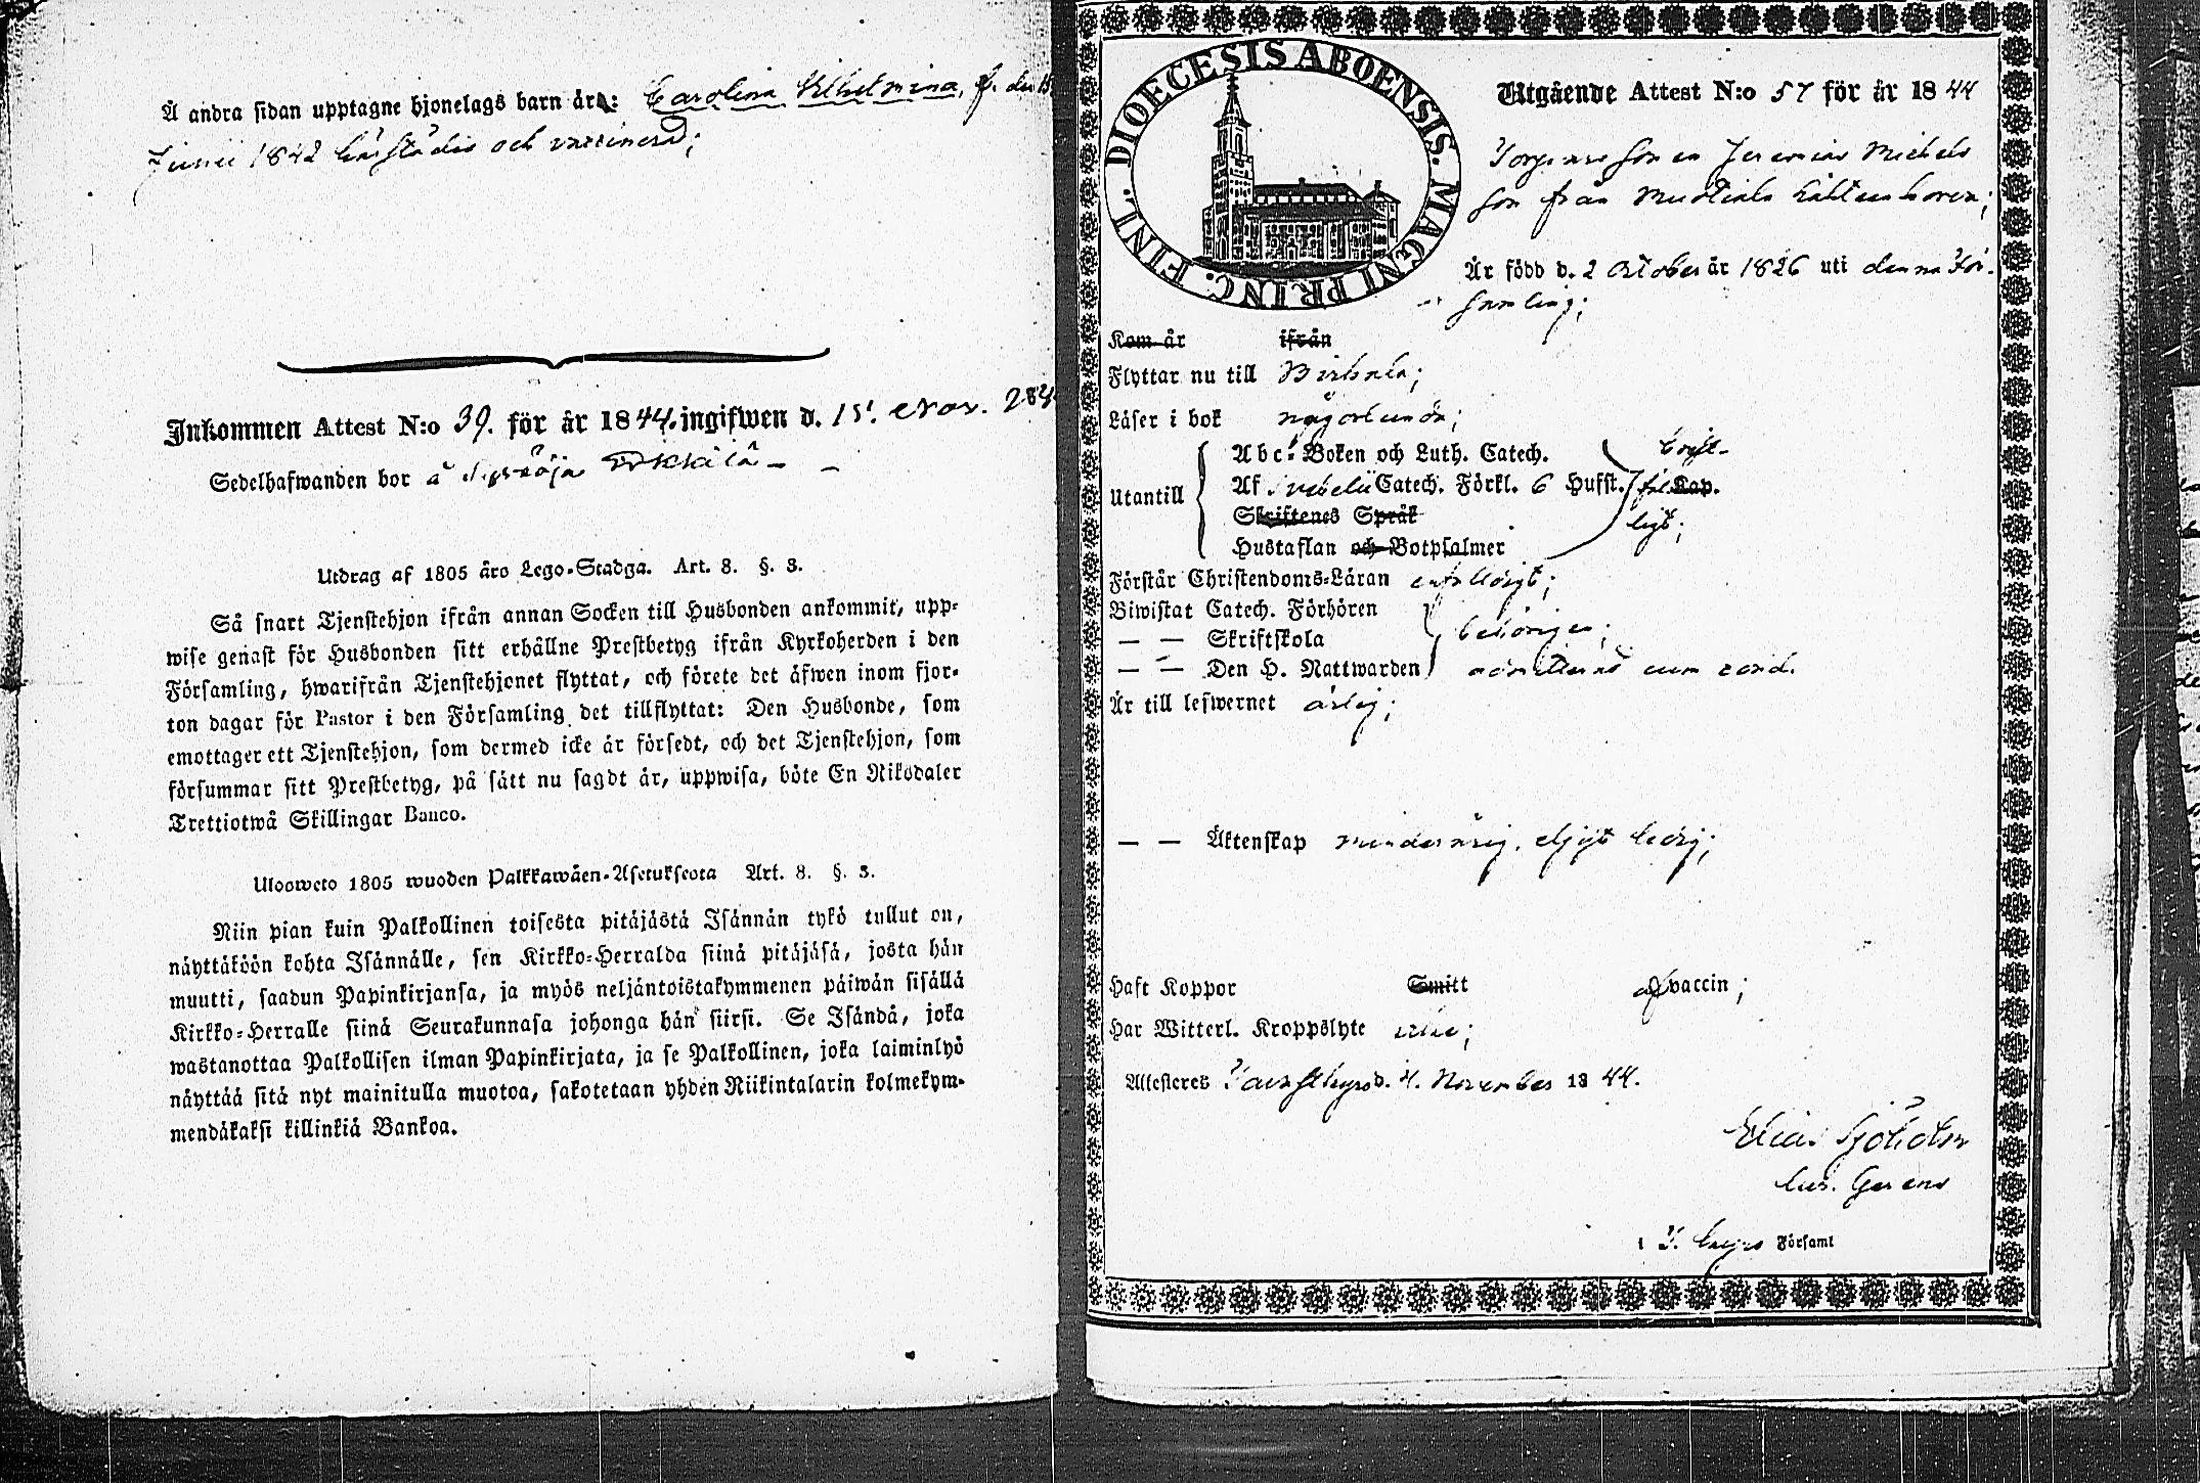 Å andra sidan upptagne hjonelags barn är: Carolina Vilhelmina, f. den 15
Junii 1842 härstädes och vaccinerad;
Inkommen Attest N:o 39. för år 1844. ingifwen d. 15. Nov. 184
Sedelhafwanden bor å
Utdrag af 1805 års Lego-Stadga. Art. 8. §. 3.
Så snart Tjenstehjon ifrån annan Socken till Husbonden ankommit, upp-
wise genast för Husbonden sitt erhållne Prestbetyg ifrån Kyrkoherden i den
Församling, hwarifrån Tjenstehjonet flyttat, och förete det äfwen inom fjor-
ton dagar för Pastor i den Församling det tillflyttat: Den Husbonde, som
emottager ett Tjenstehjon, som dermed icke är försedt, och det Tjenstehjon, som
försummar sitt Prestbetyg, på sätt nu sagdt är, uppwisa, böte En Riksdaler
Trettiotwå Skillingar Banco.
Ulosweto 1805 wuoden Palkkawäen-Asetuksesta Art. 8. §. 3.
Niin pian kuin Palkollinen toisesta pitäjästä Isännän tykö tullut on,
näyttäköön kohta Isännälle, sen Kirkko-Herralda siinä pitäjäsä, josta hän
muutti, saadun Papinkirjansa, ja myös neljäntoistakymmenen päiwän sisällä
Kirkko-Herralle siinä Seurakunnasa johonga hän siirsi. Se Isändä, joka
wastanottaa Palkollisen ilman Papinkirjata, ja se Palkollinen, joka laiminlyö
näyttää sitä nyt mainitulla muotoa, sakotetaan yhden Riikintalarin kolmekym-
mendäkaksi killinkiä Bankoa.
DIOECESIS ABOENSIS. MAGNI PRINC. FINL.
Utgående Attest N:o 57 för år 1844
Torparesonen Jeremias Michels
son från Mustiala
Är född d. 2 October år 1826 uti denna För-
samling;
Kom år ifrån
Flyttar nu till Birkala;
Läser i bok någorlunda;
Abc-Boken och Luth. Catech.
Utantill
Af Svebelii Catech. Förkl. 6 Hufst. Kap.
Skriftenes Språk
Hustaflan och Botpsalmer
Förstår Christendoms-Läran enfaldigt;
Biwistat Catech. Förhören
— — Skriftskola behörigen;
— — Den H. Nattwarden admitterad cum cond.
Är till lefwernet ärlig;
— — Äktenskap minderårig, eljest ledig;
Haft Koppor Smitt af vaccin;
Har Witterl. Kroppslyte icke;
Attesteras d. 4. November 1844.
Elias Sjöholm
Cur. Gerens
i T. Församl